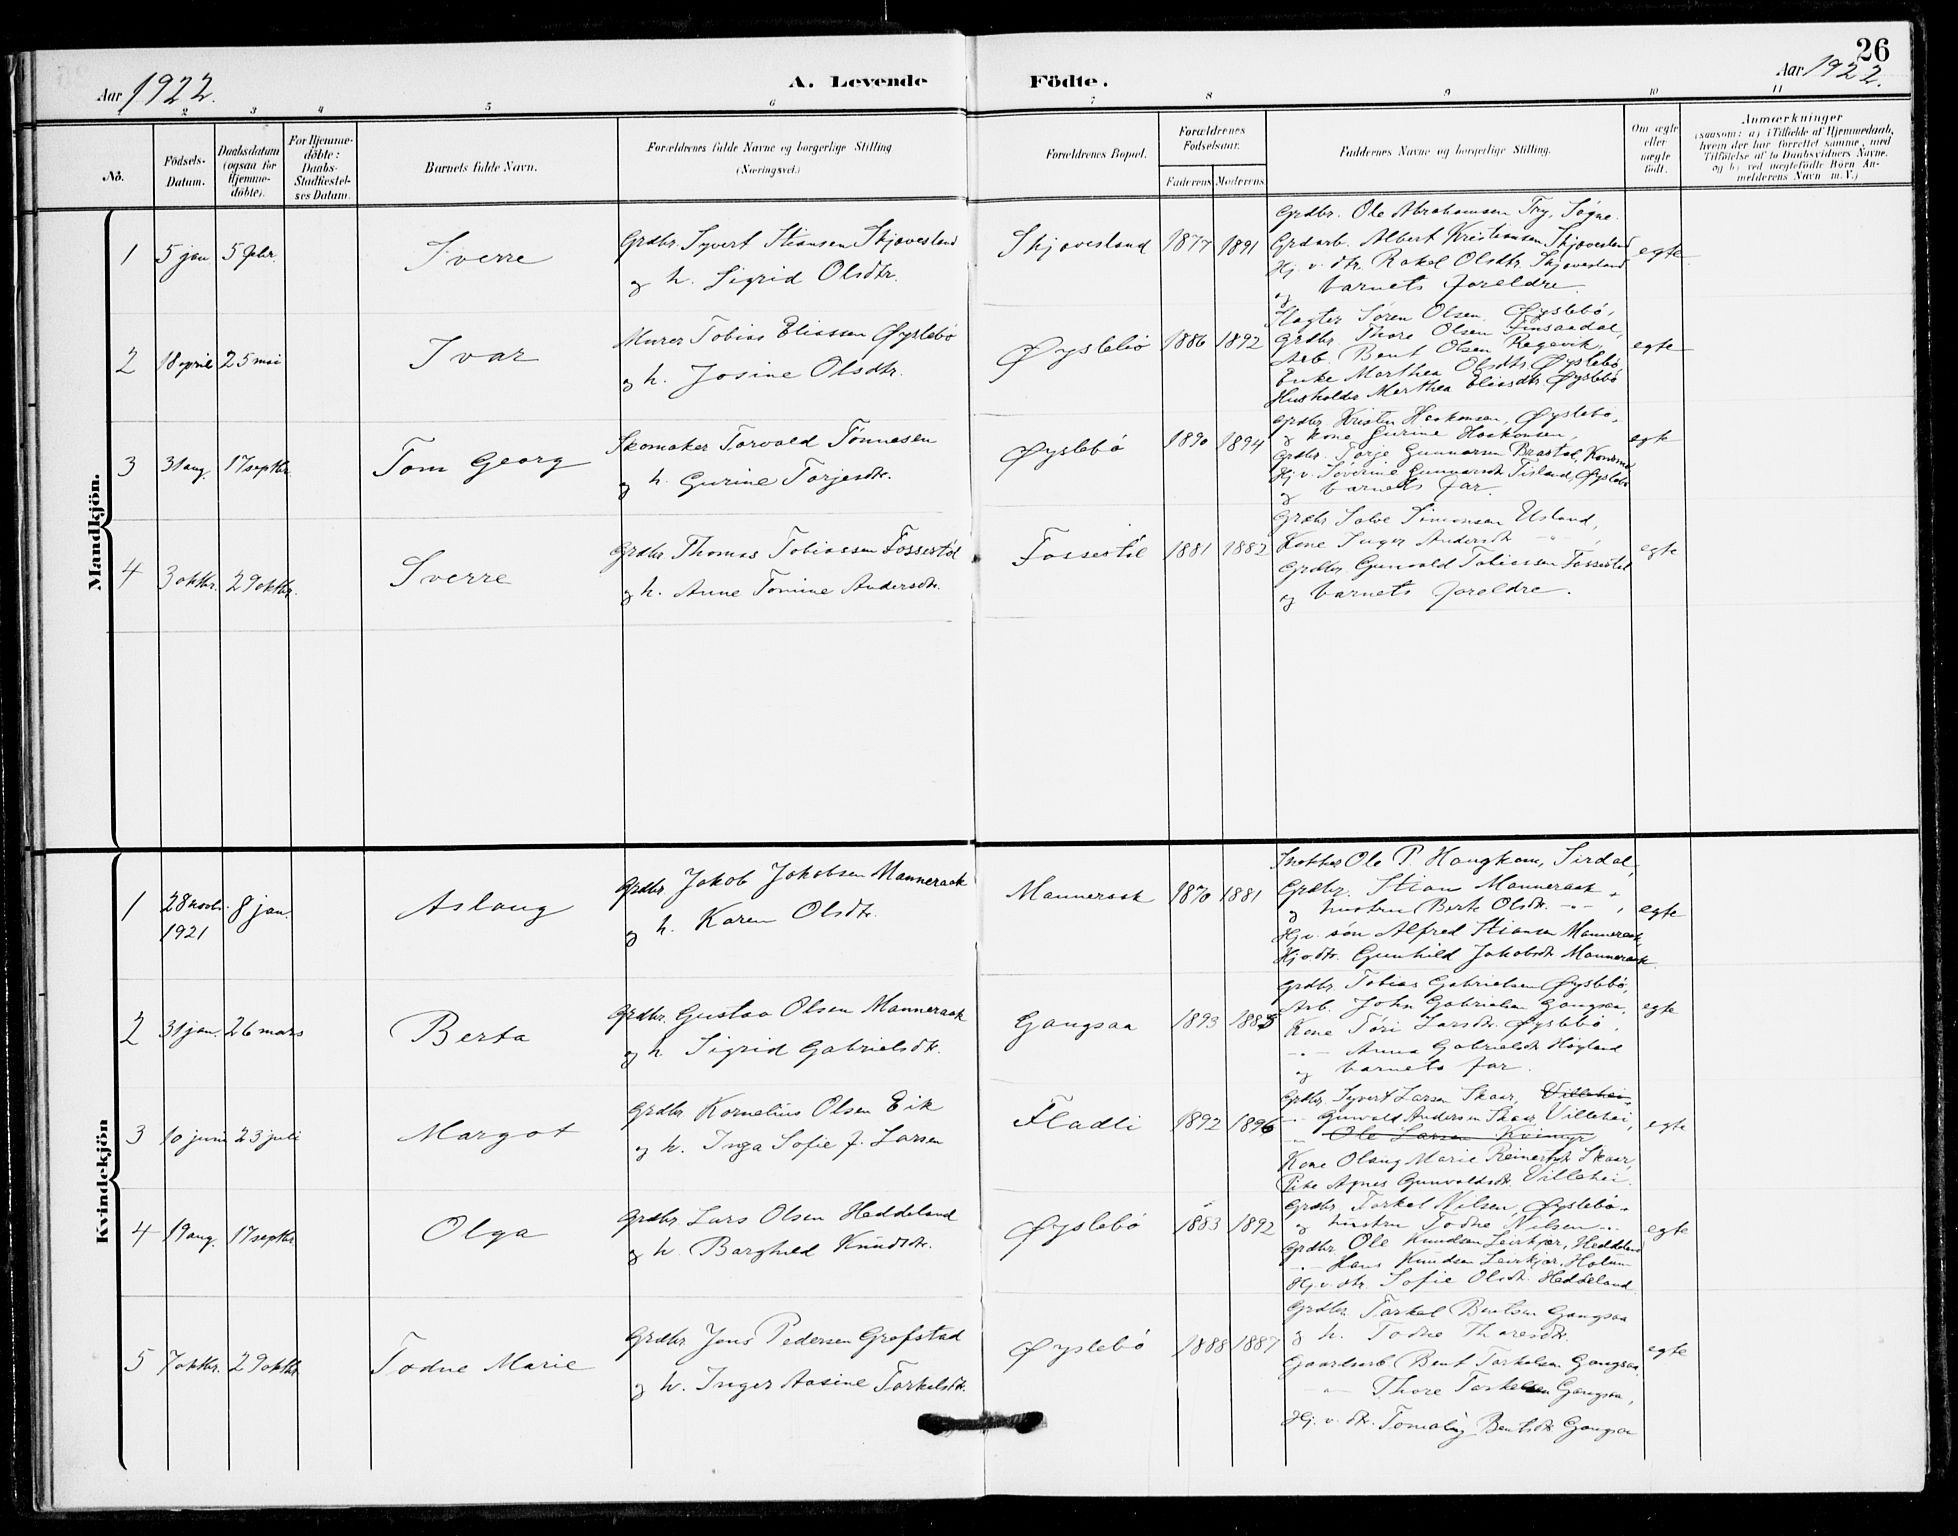 26
Aar 1922.
A. Levende Födte.
Aar 1922.
1 2 3 4 5 6 7 8 9 10 11
No.
Födsels-Datum.
Daabsdatum (ogsaa for Hjemme-döbte).
For Hjemme-döbte: Daabs-Stadfæstel-ses Datum.
Barnets fulde Navn.
Forældrenes fulde Navne og borgerlige Stilling (Næringsvei.)
Forældrenes Bopæl.
Forældrenes Fødselsaar.
Faderens Moderens
Faddernes Navne og borgerlige Stilling.
Om ægte eller uægte födt.
Anmærkninger (saasom: a) i Tilfælde af Hjemmedaab, hvem der har forrettet samme, med Tilföielse af to Daabsvidners Navne, og b) ved uægtefödte Börn An-melderens Navn m. V.)
Mandkjön.
1 5 jan 5 febr. Sverre
Grdbr. Syvert Stiansen Skjævesland
og h. Sigrid Olsdtr.
Skjævesland 1877 1891
Grdbr. Ole Abrahamsen Try, Søgne.
Grdarb. Albert Kristiansen Skjævesland
Hj. v. dtr. Rakel Olsdtr. Skjævesland
og barnets foreldre.
egte
2 18 april 25 mai Ivar
Murer Tobias Eliassen Øyslebø
og h. Josine Olsdtr.
Øyslebø 1886 1892
Slagter Søren Olsen Øyslebø,
Grdbr. Thore Olsen Finsaadal,
Arb. Bent Olsen Regevik,
Enke Marthea Olsdtr. Øyslebø
Husholder Marthea Eliasdtr. Øyslebø
egte
3 31 aug. 17 septbr. Tom Georg
Skomaker Torvald Tønnesen
og h. Gurine Torjesdtr.
Øyslebø 1890 1894
Grdbr. Kristen Haakonsen, Øyslebø.
og kone Gurine Haakonsen,
Grdbr. Torje Gunnarsen Brastøl, Konsmo
Hj. v. Søverine Gunnarsdtr. Tisland, Øyslebø
og barnets far.
egte
4 3 oktbr. 29 oktbr. Sverre
Grdbr. Thomas Tobiassen Fossestøl
og h. Anne Tomine Andersdtr.
Fossestøl 1881 1882
Grdbr. Salve Simonsen Usland,
Kone Inger Andersdtr. - " -
Grdbr. Gunvald Tobiassen Fossestøl
og barnets foreldre.
egte
Kvindekjön
1 28 novbr. 1921 8 jan. Aslaug
Grdbr. Jakob Jakobsen Manneraak
og h. Karen Olsdtr.
Manneraak 1870 1881
Ole P. Haugkom, Sirdal,
Grdbr. Stian Manneraak
og hustru Berte Olsdtr. - " - ,
Hj. v. søn Alfred Stiansen Manneraak,
Hj. v. dtr. Gunhild Jakobsdtr. Manneraak.
egte
2 31 jan. 26 mars Berta
Grdbr. Gustav Olsen Manneraak
og h. Sigrid Gabrielsdtr.
Gangsaa 1893 1885
Grdbr. Tobias Gabrielsen Øyslebø,
Arb. John Gabrielsen Gangsaa,
Kone Tøri Larsdtr. Øyslebø,
- " - Anna Gabrielsdtr. Høyland
og barnets far.
egte
3 10 juni 23 juli Margot
Grdbr. Kornelius Olsen Eik
og h. Inga Sofie J. Larsen
Fladli 1892 1896
Grdbr. Syvert Larsen Skaar, Villehei.
- " - Gunvald Andersen Skaar, Villehei,
- " - Ole Larsen Kvimyr
Kone Olaug Marie Reinertsdtr. Skaar,
Pike Agnes Gunvaldsdtr. Villehei.
egte
4 19 aug. 17 septbr. Olga
Grdbr. Lars Olsen Heddeland
og h. Borghild Knudsdtr.
Øyslebø 1883 1892
Grdbr. Torkel Nilsen, Øyslebø.
og hustru Todne Nilsen - " -
Grdbr. Ole Knudsen Leirkjær, Heddeland
- " - Hans Knudsen Leirkjær, Holum
Hj. v. dtr. Sofie Olsdtr. Heddeland.
egte
5 7 oktbr. 29 oktbr. Todne Marie
Grdbr. Jens Pedersen Grofstad
og h. Inger Aasine Torkelsdtr.
Øyslebø 1888 1887
Grdbr. Torkel Bentsen Gangsaa
og h. Todne Thoresdtr.
Gaardsarb. Bent Torkelsen Gangsaa,
- " - Thore Torkelsen Gangsaa,
Hj. v. dtr. Bentsdtr. Gangsaa
egte